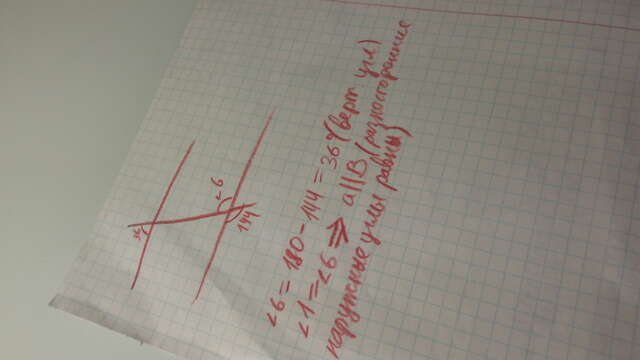 36
∠6
144
∠6 = 180 - 144 = 36° (верт угл)
∠1 = ∠6 ⇒ a||B, (разносторонние
наружные углы равны)